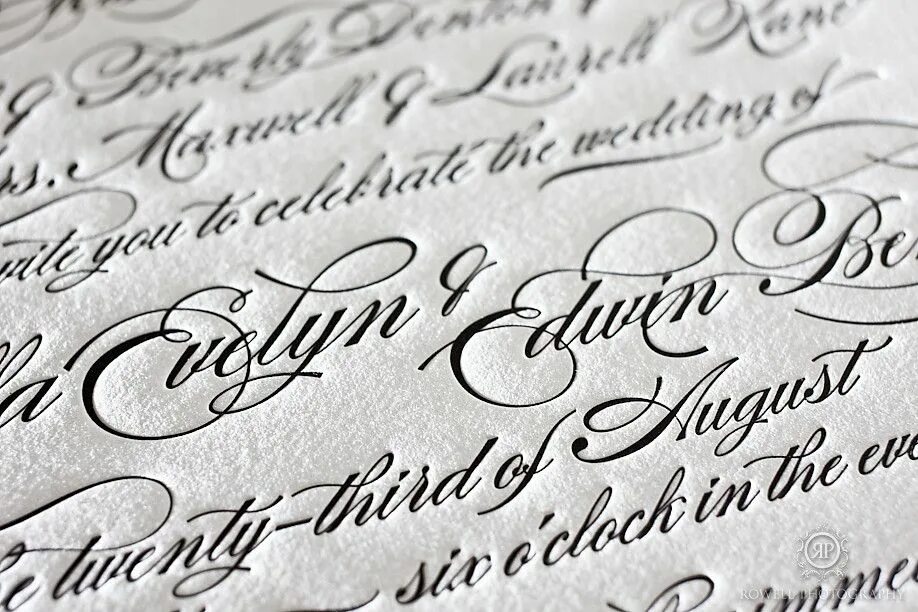 & Beverly Denton &
rs. Maxwell & Laurell Kane
vite you to celebrate the wedding of
la Evelyn & Edwin Be
e twenty-third of August
six o'clock in the eve
RP
ROWELL PHOTOGRAPHY